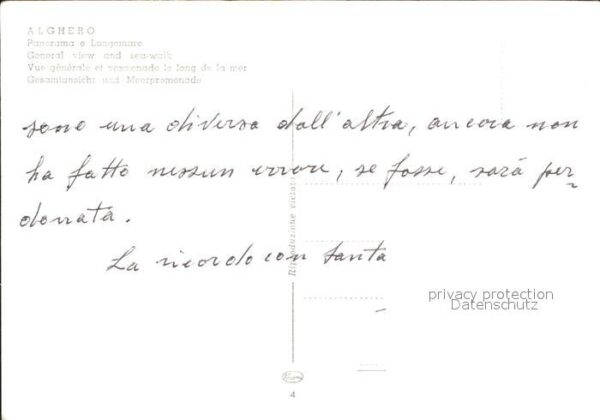 ALGHERO
Panorama e Lungomare
General view and sea-walk
Vue générale et promenade le long de la mer
Gesamtansicht und Meerpromenade
sono una diversa dall'altra, ancora non
ha fatto nessun errore, se fosse, sarà per=
donata.
La ricordo con Santa
Riproduzione vietata
privacy protection
Datenschutz
4